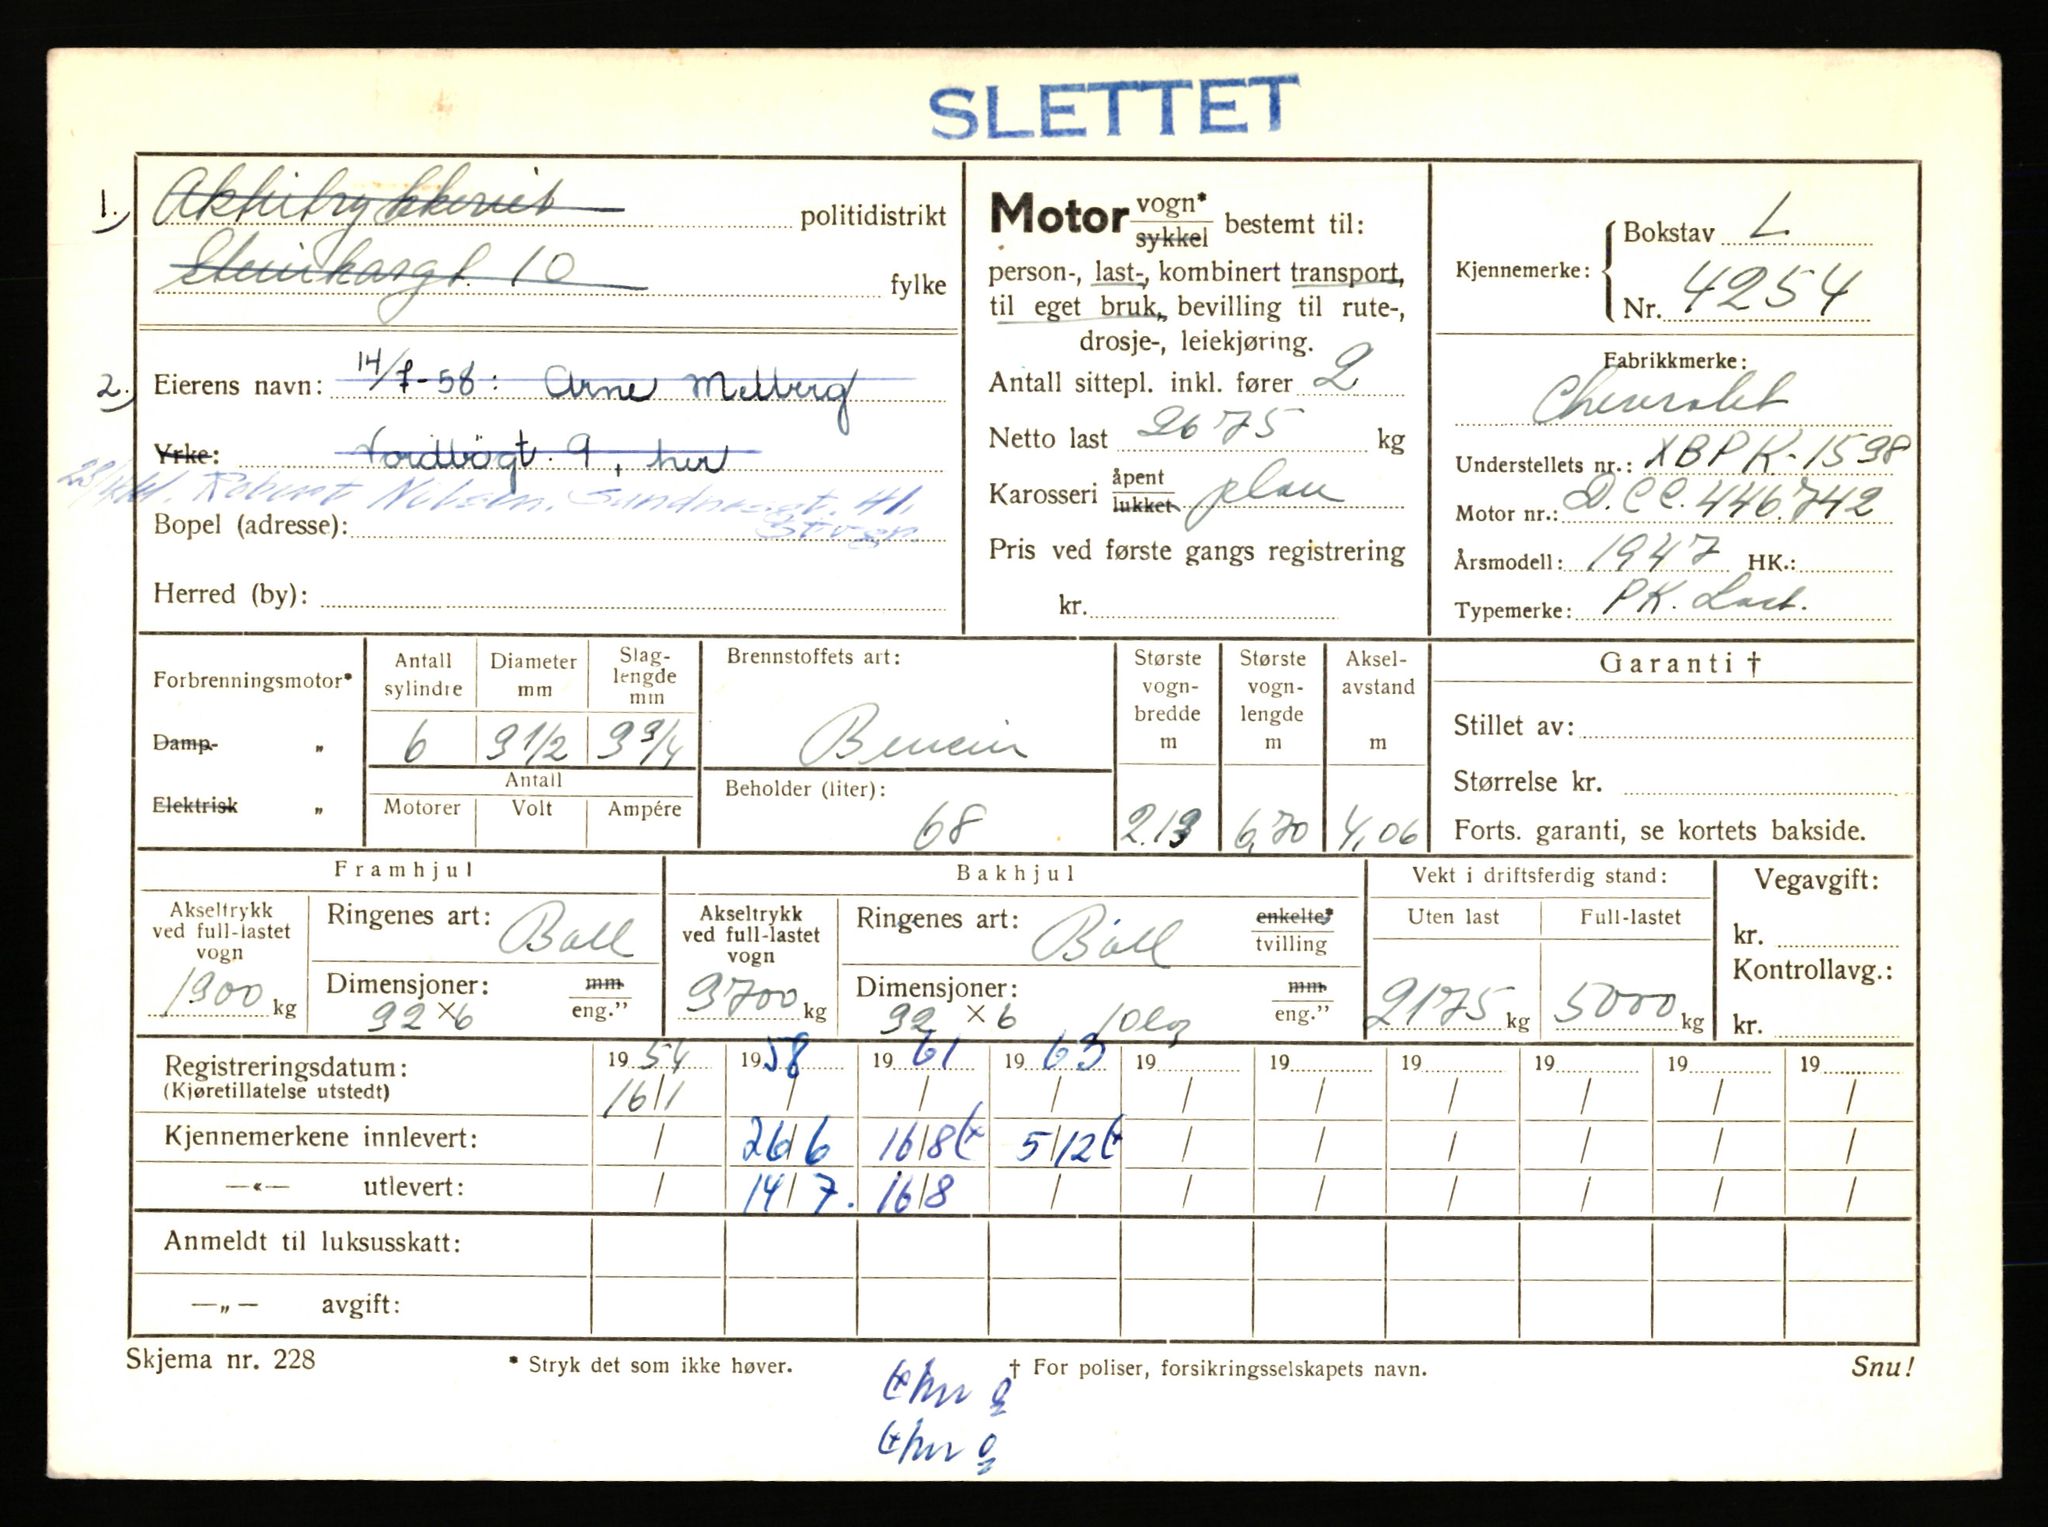 SLETTET
1.) Aktietrykkeriet politidistrikt
Steinkargt. 10 fylke
2.) Eierens navn: 14/7-58: Arne Melberg
Yrke: Nordbøgt. 9, her
Robert Nilsen. 41.
Bopel (adresse): Stvgr.
Herred (by):
Motor vogn* sykkel bestemt til:
person-, last-, kombinert transport,
til eget bruk, bevilling til rute-,
drosje-, leiekjøring.
Antall sittepl. inkl. fører 2
Netto last 2675 kg
Karosseri åpent lukket plan
Pris ved første gangs registrering
kr.
Kjennemerke: Bokstav L
Nr. 4254
Fabrikkmerke:
Chevrolet
Understellets nr.: XBPK-1598
Motor nr.: D.C.C. 446742
Årsmodell: 1947 HK.:
Typemerke: PK. Last.
Forbrenningsmotor*
Damp- „
Elektrisk „
Antall sylindre 6
Diameter mm 3 1/2
Slaglengde mm 3 3/4
Antall
Motorer Volt Ampére
Brennstoffets art:
Bensin
Beholder (liter):
68
Største vogn-bredde m 2.13
Største vogn-lengde m 6,70
Aksel-avstand m 4,06
Garanti †
Stillet av:
Størrelse kr.
Forts. garanti, se kortets bakside.
Framhjul
Akseltrykk ved full-lastet vogn 1300 kg
Ringenes art: Ball
Dimensjoner: 32 x 6 mm eng.”
Bakhjul
Akseltrykk ved full-lastet vogn 3700 kg
Ringenes art: Ball enkelte* tvilling
Dimensjoner: 32 x 6 10lag mm eng.”
Vekt i driftsferdig stand:
Uten last Full-lastet
2175 kg 5000 kg
Vegavgift:
kr.
Kontrollavg.:
kr.
Registreringsdatum: 1954 1958 1961 1963 19 19 19 19 19 19
(Kjøretillatelse utstedt) 16/1 / / / / / / / / /
Kjennemerkene innlevert: / 26/6 16/8 (x 5/12 (x / / / / / /
—«— utlevert: / 14/7. 16/8 / / / / / / /
Anmeldt til luksusskatt:
—„— avgift:
Skjema nr. 228 * Stryk det som ikke høver. † For poliser, forsikringsselskapets navn. Snu!